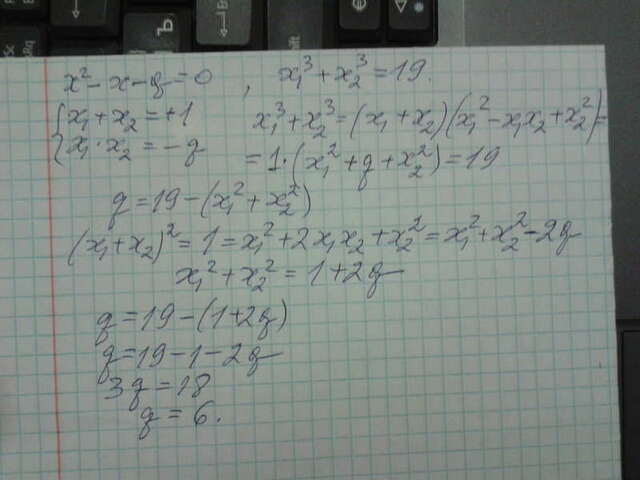 x² - x - q = 0 , x₁³ + x₂³ = 19.
{ x₁ + x₂ = +1
x₁ · x₂ = -q
x₁³ + x₂³ = (x₁ + x₂)(x₁² - x₁x₂ + x₂²) =
= 1 · (x₁² + q + x₂²) = 19
q = 19 - (x₁² + x₂²)
(x₁ + x₂)² = 1 = x₁² + 2x₁x₂ + x₂² = x₁² + x₂² - 2q
x₁² + x₂² = 1 + 2q
q = 19 - (1 + 2q)
q = 19 - 1 - 2q
3q = 18
q = 6.